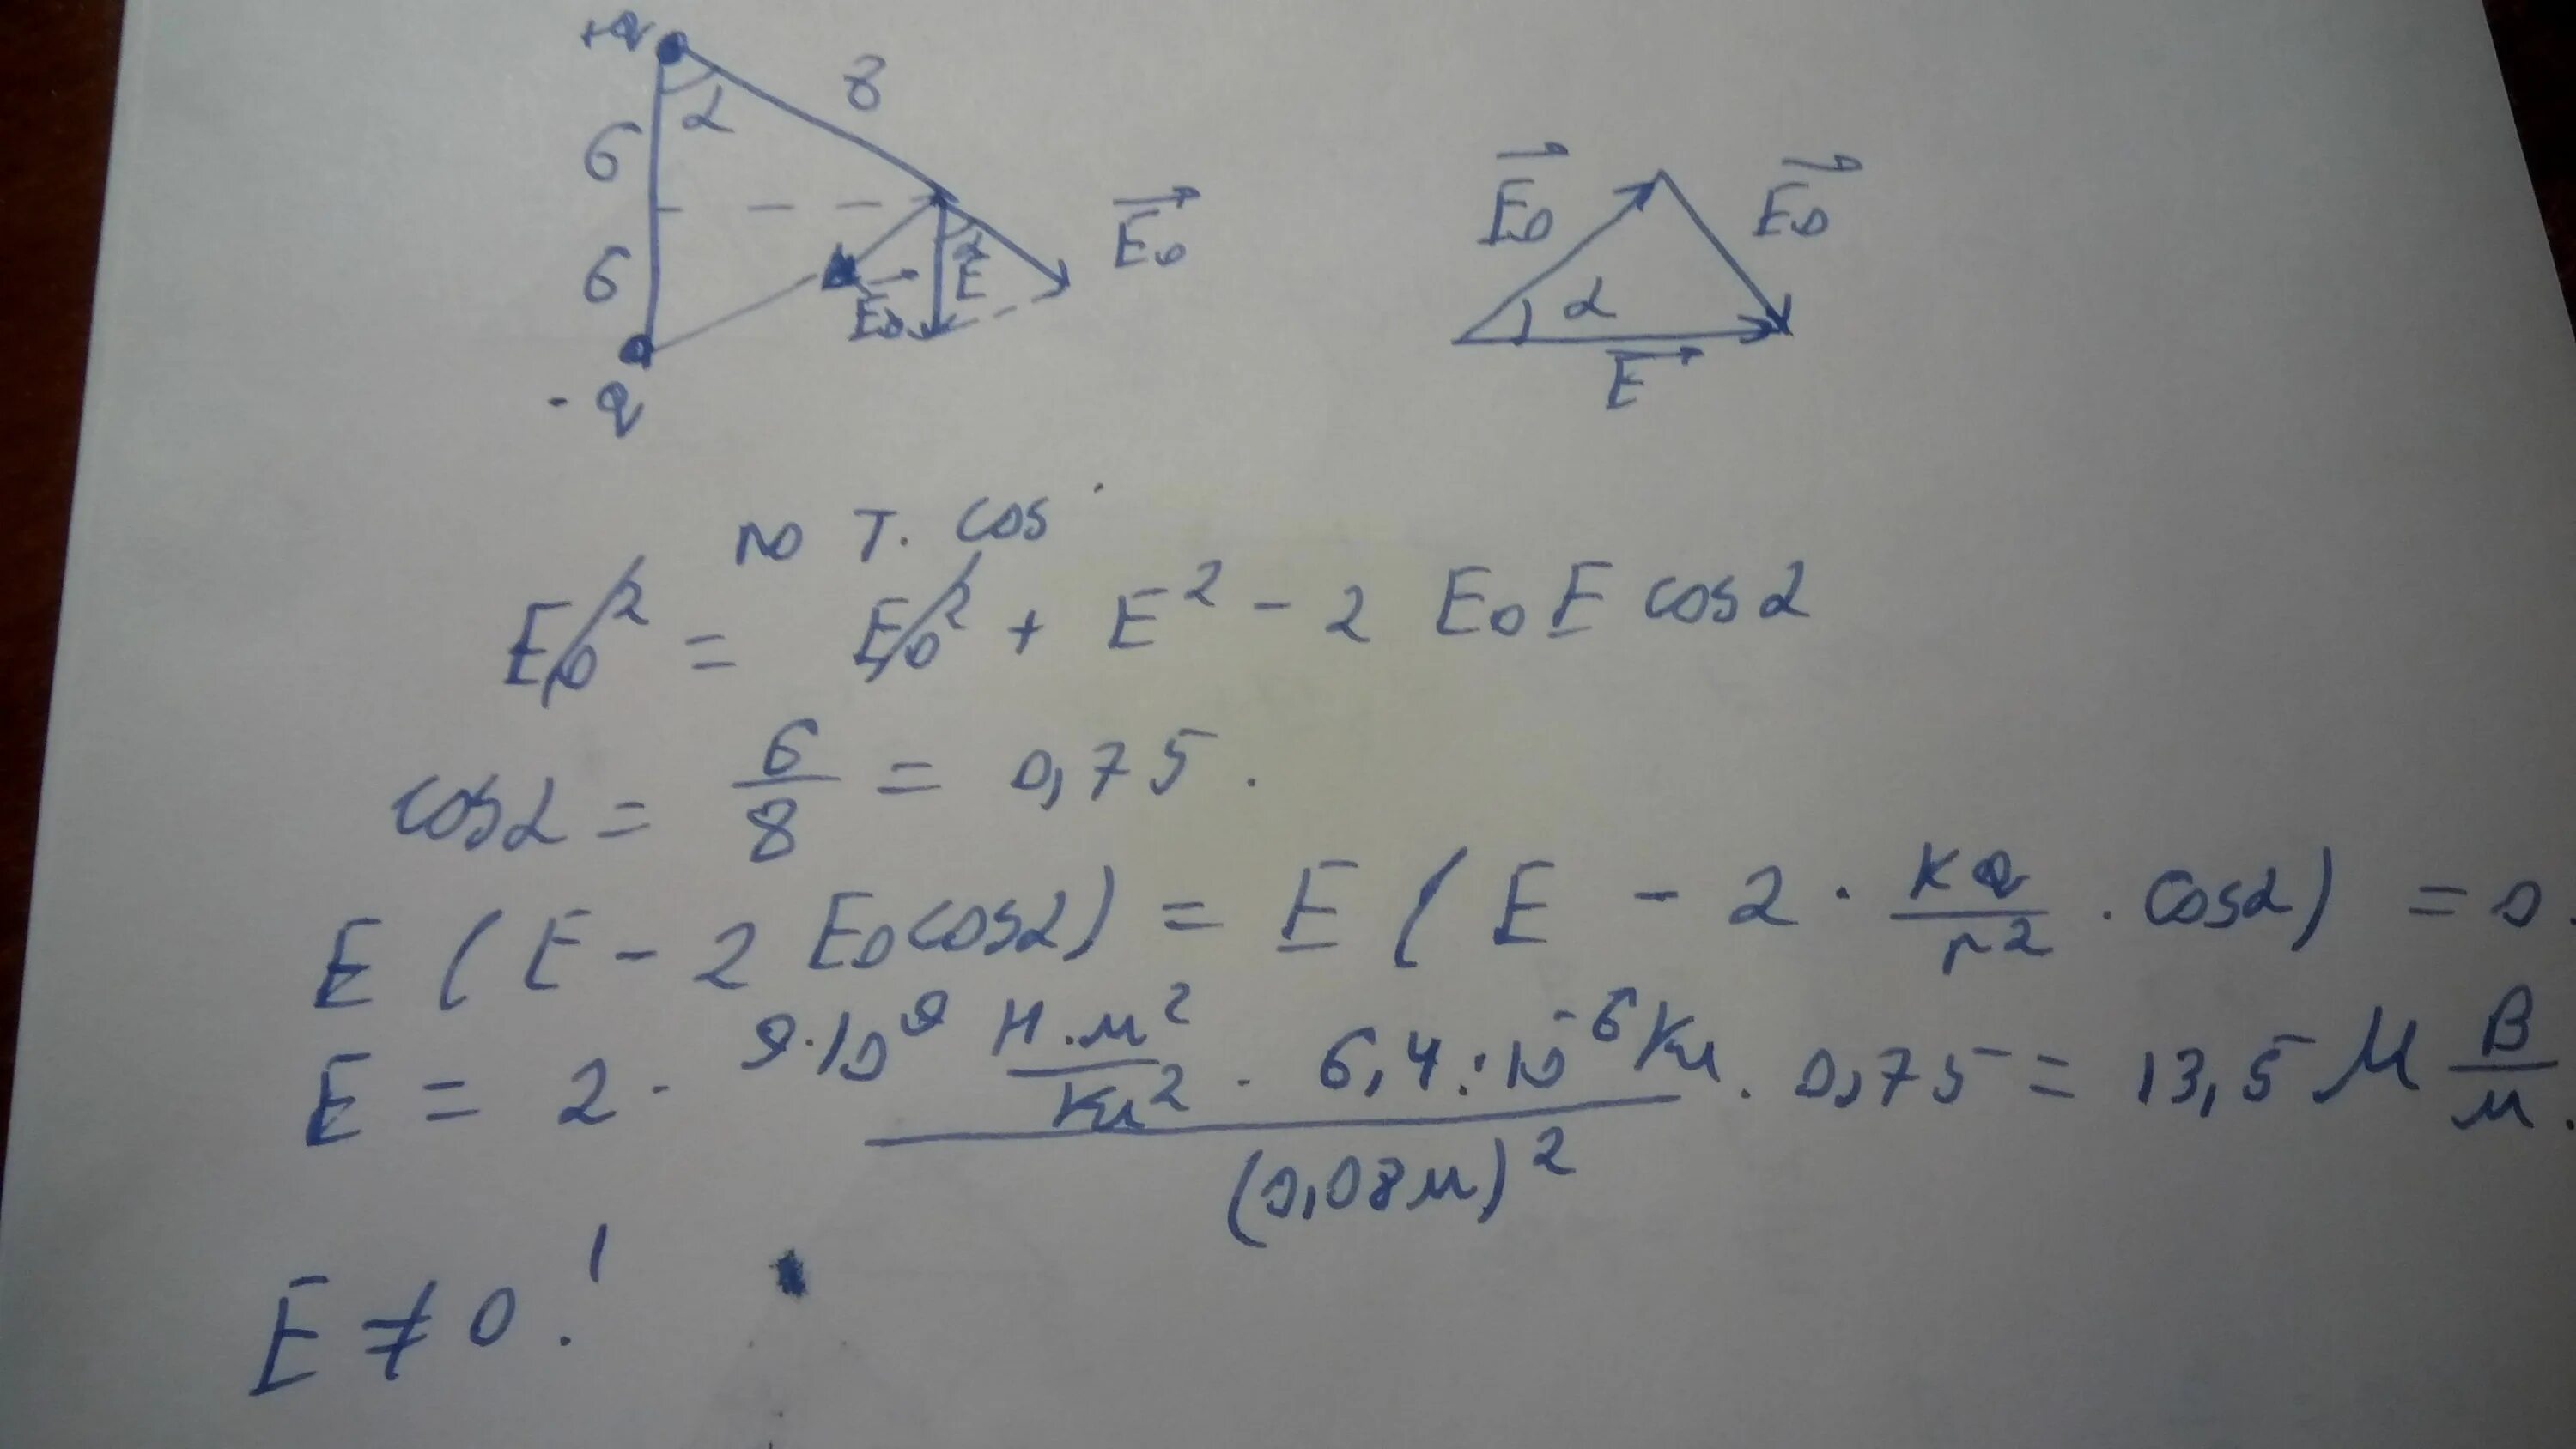 +q
8
α
6
6
E₀
α
E
E₀
- q
E₀
E₀
α
E
по т. cos
E₀² = E₀² + E² - 2 E₀ E cosα
cosα = 6/8 = 0,75.
E (E - 2 E₀ cosα) = E (E - 2 · kq/r² · cosα) = 0.
E = 2 · 9·10⁹ Н·м²/Кл² · 6,4·10⁻⁶ Кл / (0,08м)² · 0,75 = 13,5 М В/м.
E ≠ 0!